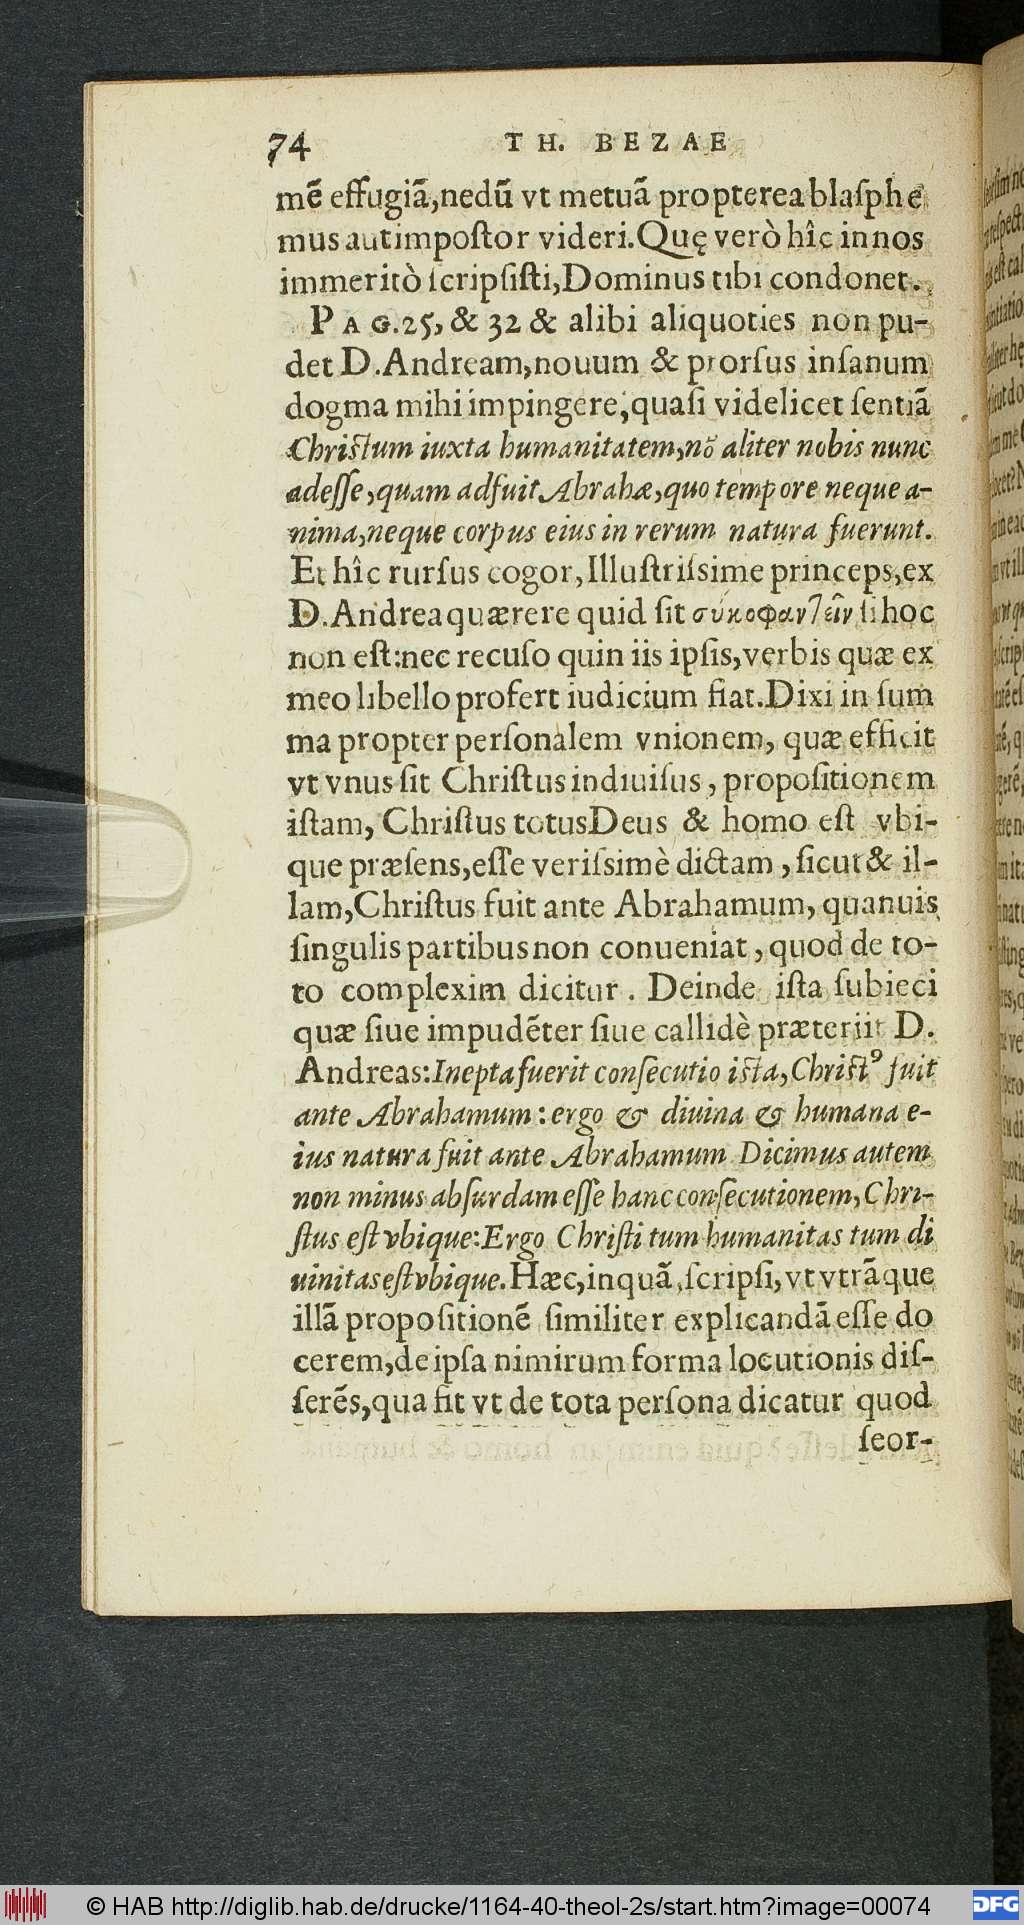 74 TH. BEZAE
mẽ effugiã, nedũ vt metuã propterea blasphe
mus aut impostor videri. Quę verò hîc in nos
immeritò scripsisti, Dominus tibi condonet.
PAG. 25, & 32 & alibi aliquoties non pu-
det D. Andream, nouum & prorsus insanum
dogma mihi impingere, quasi videlicet sentiã
Christum iuxta humanitatem, nõ aliter nobis nunc
adesse, quam adfuit Abrahæ, quo tempore neque a-
nima, neque corpus eius in rerum natura fuerunt.
Et hîc rursus cogor, Illustrissime princeps, ex
D. Andrea quærere quid sit συκοφαντεῖν si hoc
non est: nec recuso quin iis ipsis, verbis quæ ex
meo libello profert iudicium fiat. Dixi in sum
ma propter personalem vnionem, quæ efficit
vt vnus sit Christus indiuisus, propositionem
istam, Christus totus Deus & homo est vbi-
que præsens, esse verissimè dictam, sicut & il-
lam, Christus fuit ante Abrahamum, quanuis
singulis partibus non conueniat, quod de to-
to complexim dicitur. Deinde ista subieci
quæ siue impudẽter siue callidè præteriit D.
Andreas: Inepta fuerit consecutio ista, Christꝰ fuit
ante Abrahamum: ergo & diuina & humana e-
ius natura fuit ante Abrahamum Dicimus autem
non minus absurdam esse hanc consecutionem, Chri-
stus est vbique: Ergo Christi tum humanitas tum di
uinitas est vbique. Hæc, inquã, scripsi, vt vtrãque
illã propositionẽ similiter explicandã esse do
cerem, de ipsa nimirum forma locutionis dis-
serẽs, qua fit vt de tota persona dicatur quod
seor-
© HAB http://diglib.hab.de/drucke/1164-40-theol-2s/start.htm?image=00074
DFG